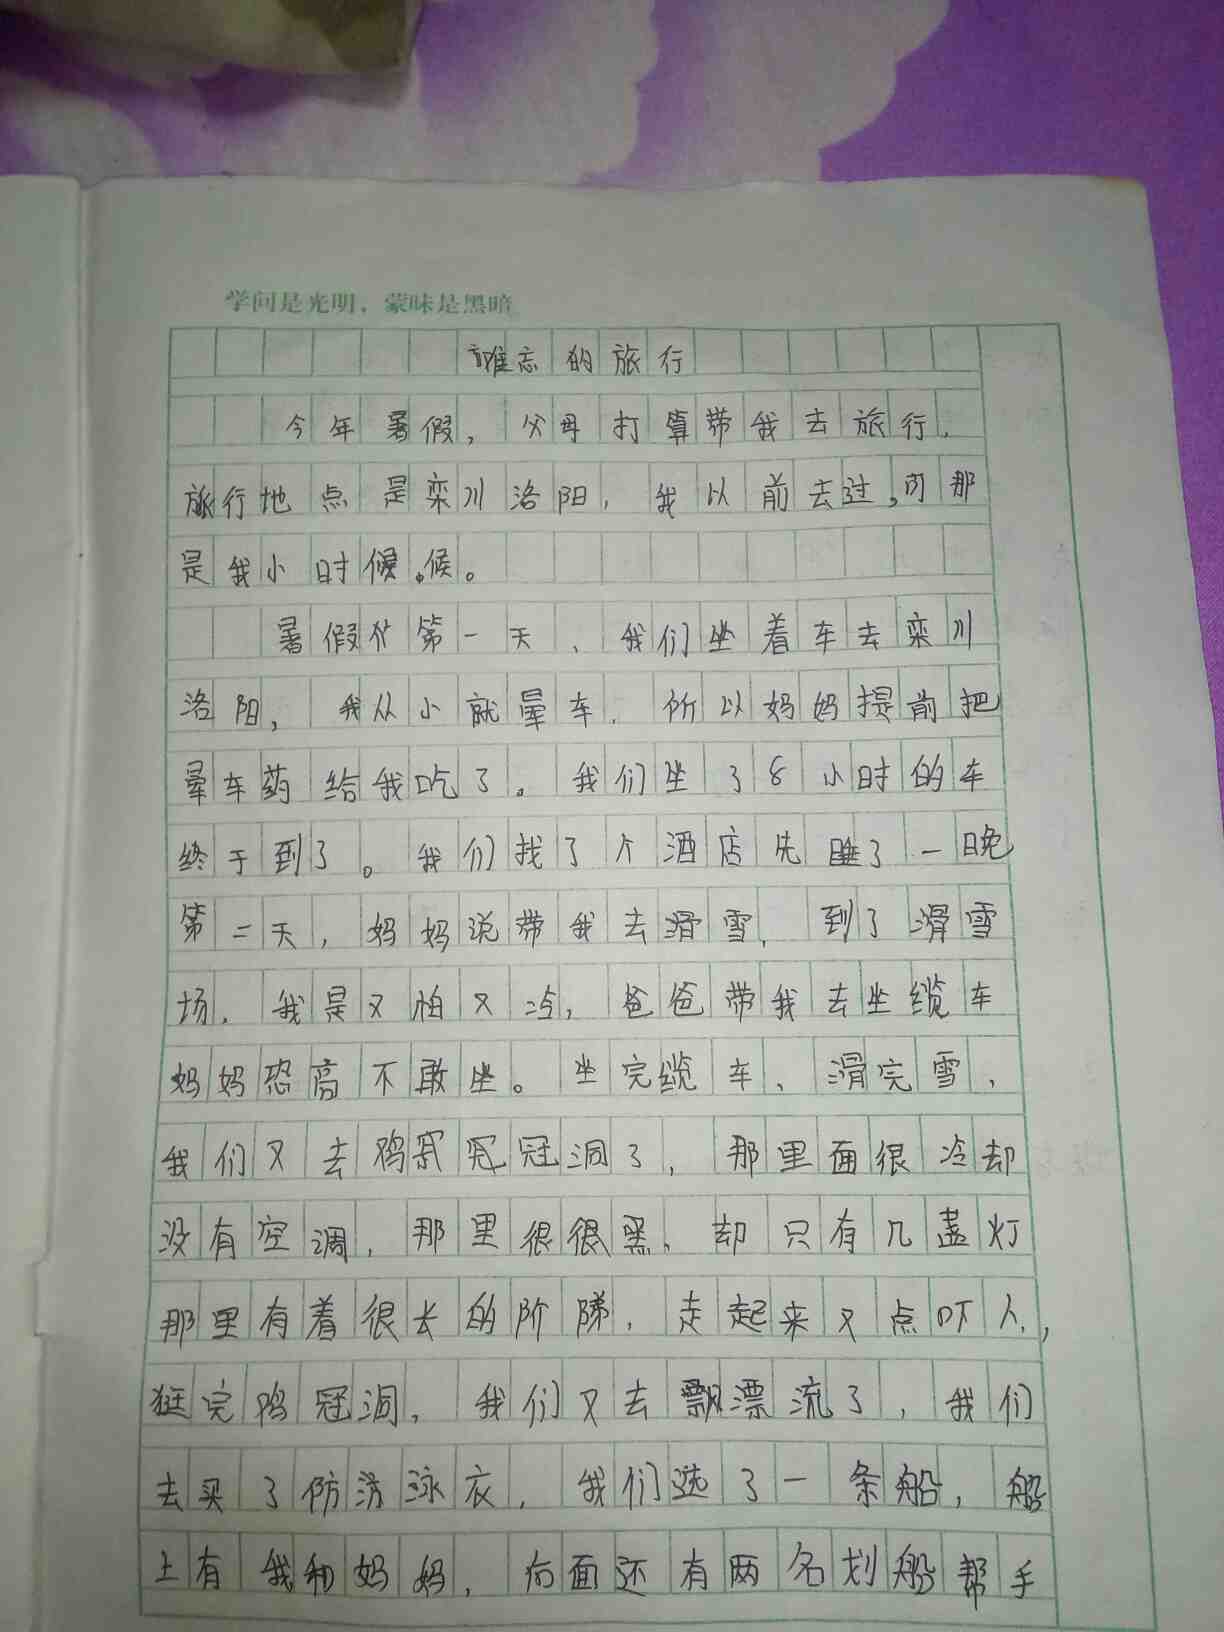 学问是光明，蒙昧是黑暗
难忘的旅行
今年暑假，父母打算带我去旅行，
旅行地点是栾川洛阳，我以前去过，可那
是我小时候。候。
暑假的第一天，我们坐着车去栾川
洛阳，我从小就晕车，所以妈妈提前把
晕车药给我吃了。我们坐了8小时的车
终于到了。我们找了个酒店先睡了一晚
第二天，妈妈说带我去滑雪，到了滑雪
场，我是又怕又冷，爸爸带我去坐缆车
妈妈恐高不敢坐。坐完缆车、滑完雪，
我们又去鸡冠洞了，那里面很冷却
没有空调，那里很很黑，却只有几盏灯
那里有着很长的阶梯，走起来又点吓人，
逛完鸡冠洞，我们又去飘漂流了，我们
去买了防游泳衣，我们选了一条船，船
上有我和妈妈，后面还有两名划船帮手